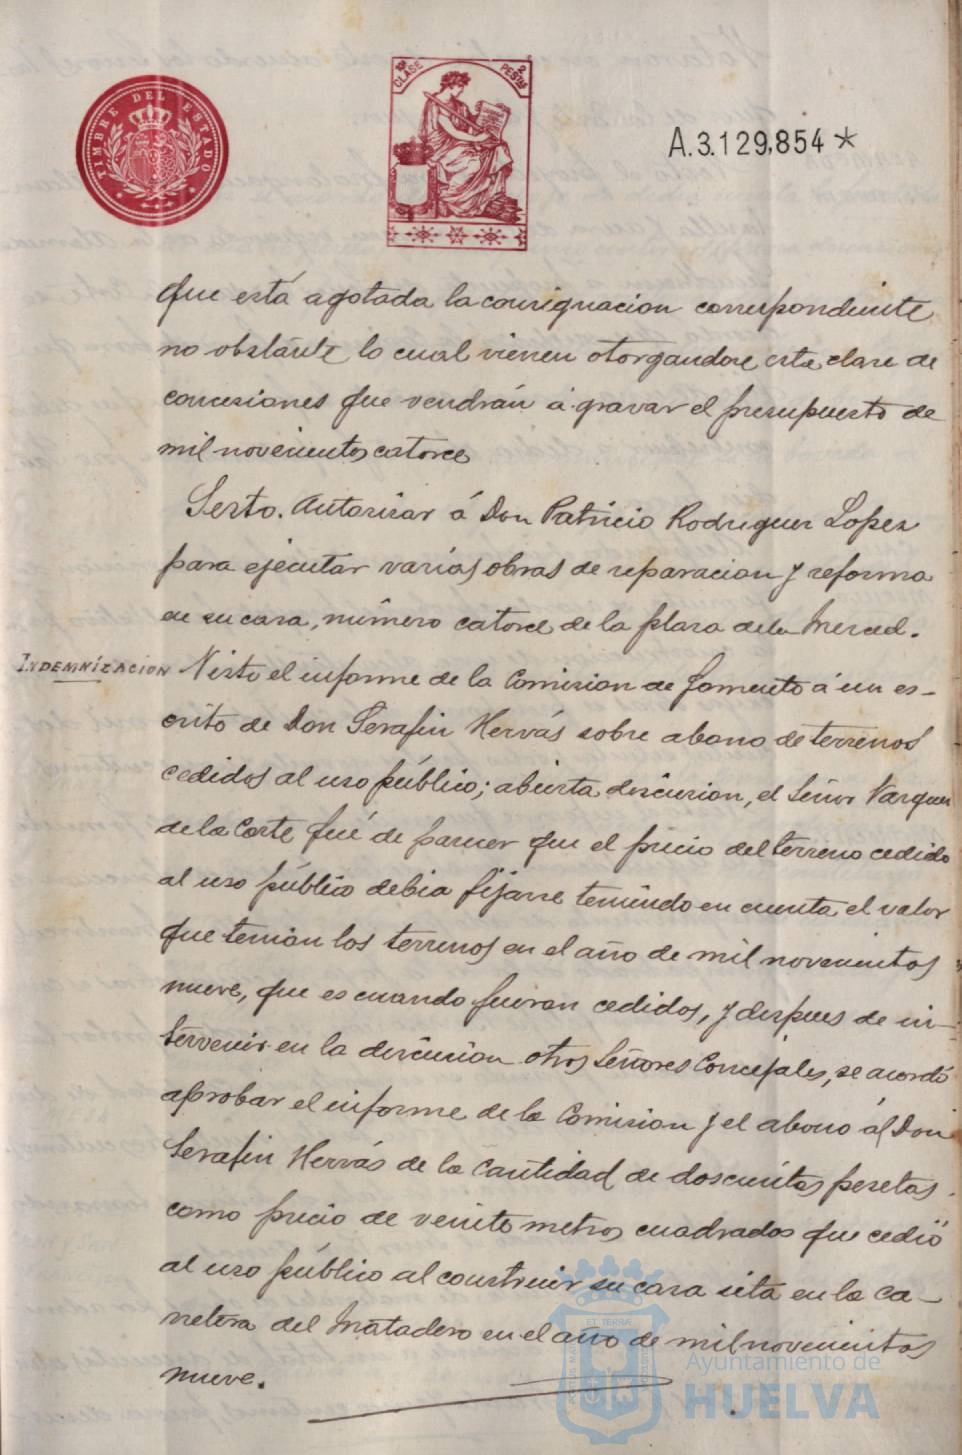 TIMBRE DEL ESTADO
10ª CLASE
2 PESTAS
A.3.129,854*
que está agotada la consignacion correspondiente
no obstante lo cual vienen otorgandose esta clase de
concesiones que vendrán á gravar el presupuesto de
mil novecientos catorce
Sesto. Autorizar á Don Patricio Rodriguez Lopez
para ejecutar varias obras de reparacion y reforma
en su casa, número catorce de la plaza de la Merced.
INDEMNIZACION Visto el informe de la Comision de Fomento á un es-
crito de Don Serafin Hervás sobre abono de terrenos
cedidos al uso público; abierta discusion, el Señor Vazquez
de la Corte fué de parecer que el precio del terreno cedido
al uso público debia fijarse teniendo en cuenta el valor
que tenian los terrenos en el año de mil novecientos
nueve, que es cuando fueron cedidos, y despues de in-
tervenir en la discusion otros Señores Concejales, se acordó
aprobar el informe de la Comision y el abono al Don
Serafin Hervás de la cantidad de doscientas pesetas
como precio de veinte metros cuadrados que cedió
al uso público al construir su casa sita en la Ca-
rretera del Matadero en el año de mil novecientos
nueve.
Ayuntamiento de
HUELVA